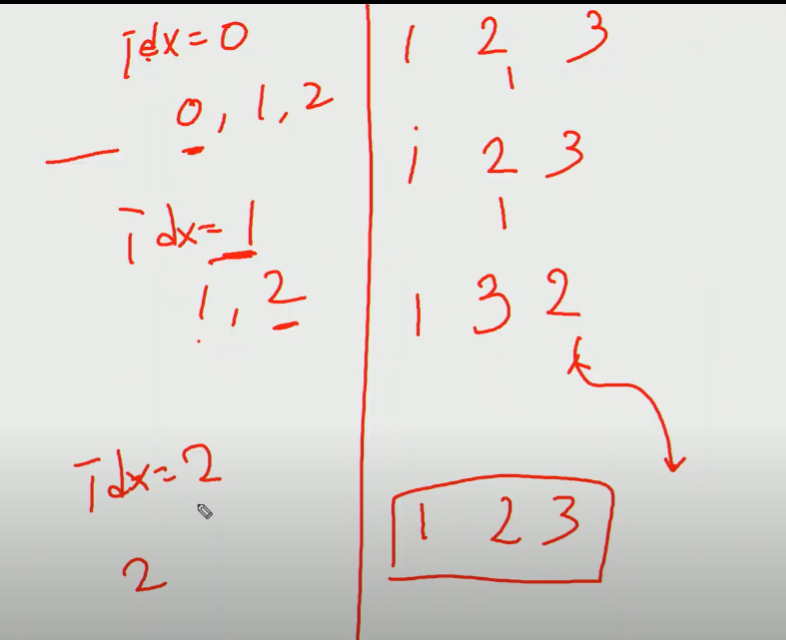 Idx=0
0, 1, 2
Idx=1
1, 2
Idx=2
2
1 2 3
1
1 2 3
1
1 3 2
1 2 3